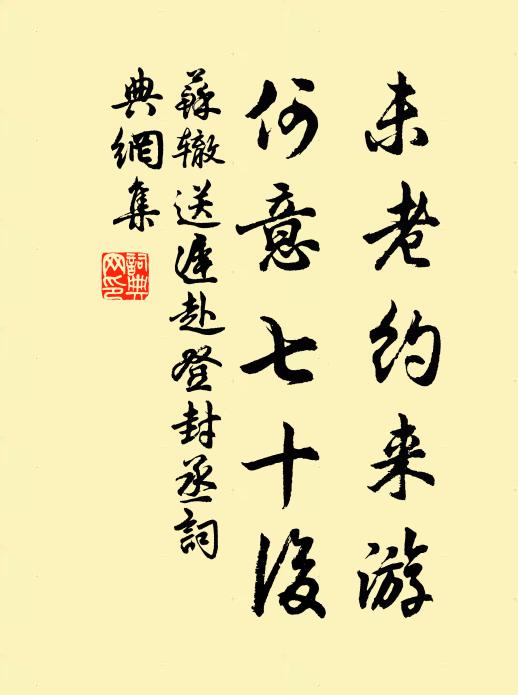 未老约来游
何意七十後
蘇辙送遲赴登封丞詞
典網集
詞典網印